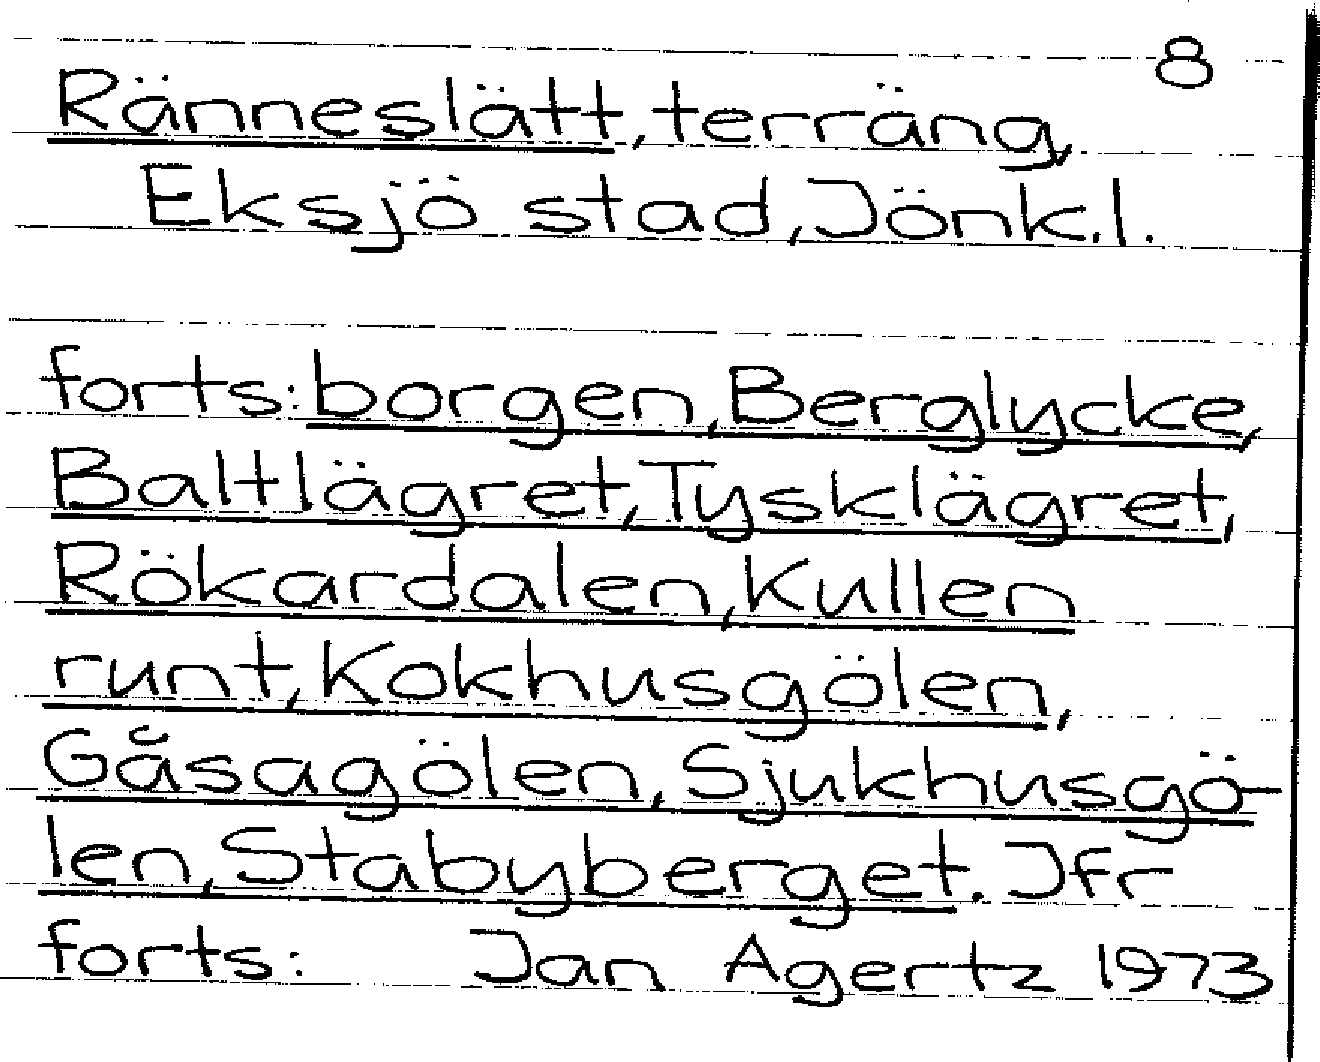 8
Ränneslätt, terräng,
Eksjö stad, Jönk.l.
forts: borgen, Berglycke,
Baltlägret, Tysklägret,
Rökardalen, Kullen
runt, Kokhusgölen,
Gåsagölen, Sjukhusgö-
len, Stabyberget. Jfr
forts: Jan Agertz 1973